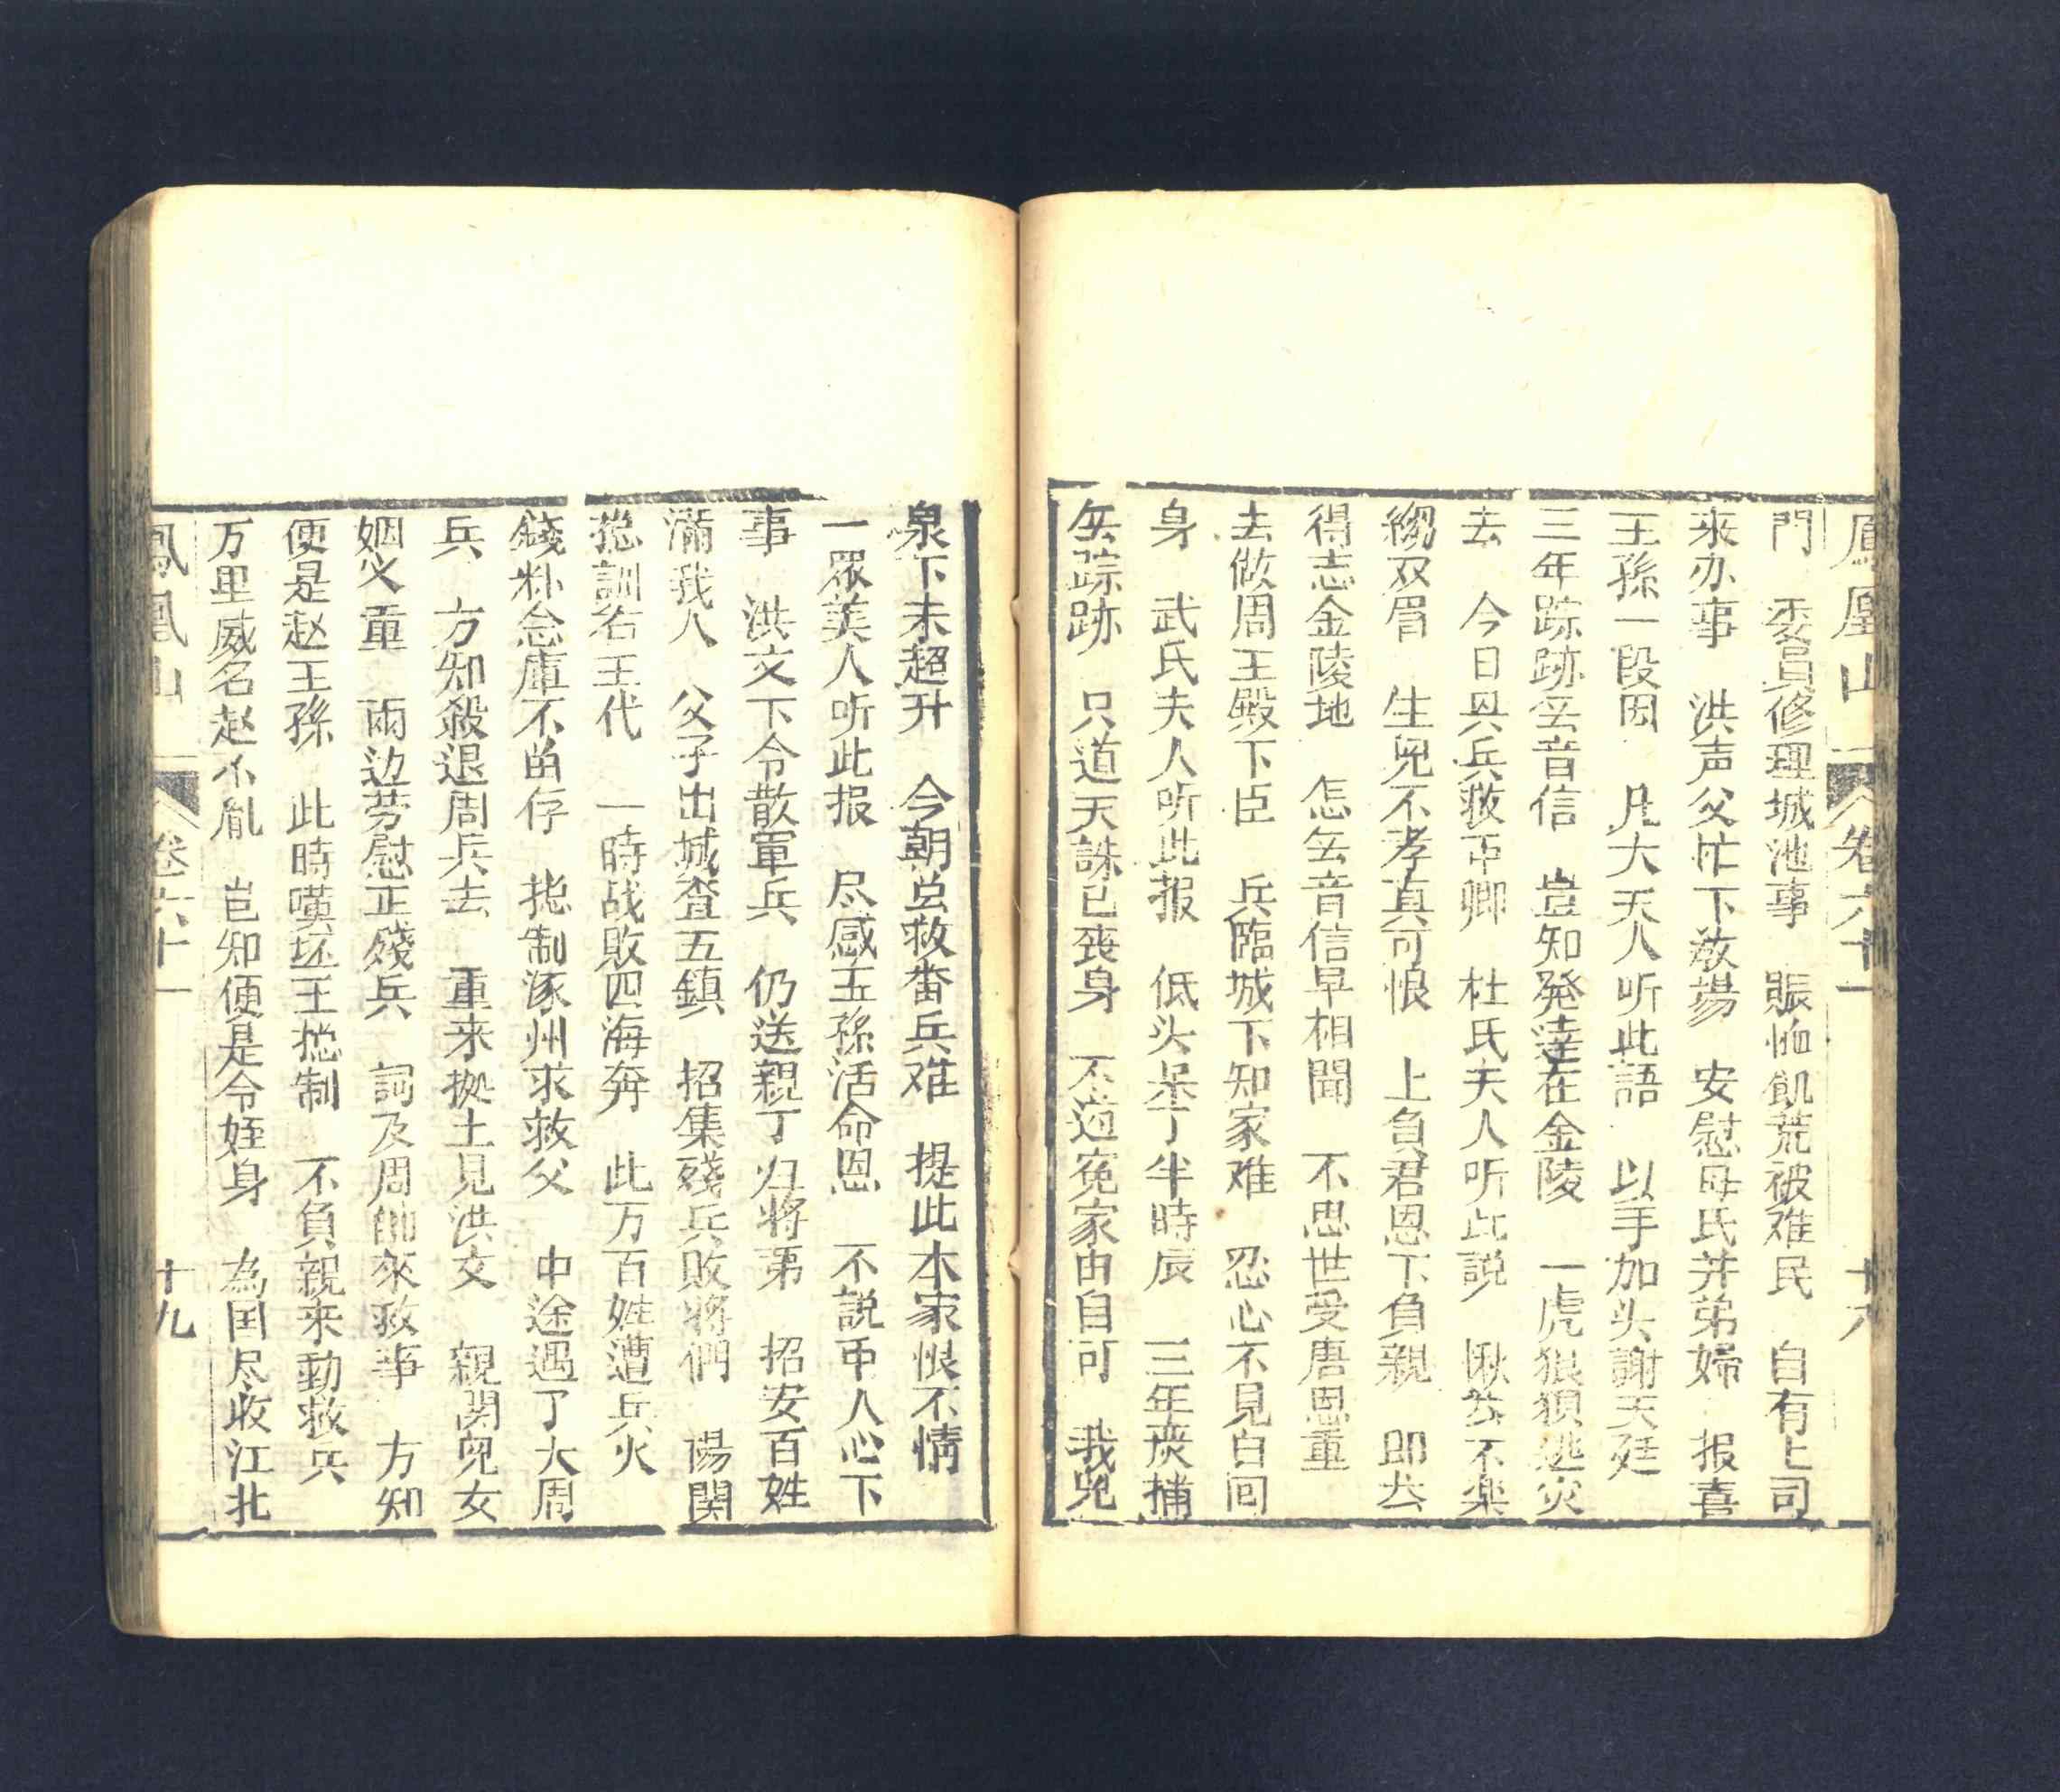 鳳凰山 卷六十一 十八
門 委員修理城池事 賑恤飢荒被难民 自有上司
來办事 洪声父忙下教場 安慰母氏并弟婦 报喜
王孫一段因 凡大夭人听此語 以手加头謝天廷
三年踪跡㒰音信 豈知発達在金陵 一虎狼狽逃灾
去 今日具兵救帀卿 杜氏夫人听此説 愀然不楽
縐双眉 生児不孝真可恨 上負君恩下負親 即去
得志金陵地 怎㒰音信早相聞 不思世受唐恩重
去做周王殿下臣 兵臨城下知家难 忍心不見白回
身 武氏夫人听此报 低头呆了半時辰 三年葓捕
㒰踪跡 只道天誅已丧身 不道冤家由自可 我児
泉下未超升 今朝总救畨兵难 提此本家恨不情
一眾美人听此报 尽感王孫活命恩 不説帀人心下
事 洪文下令散軍兵 仍送親丁归將第 招安百姓
滿我人 父子出城查五鎮 招集殘兵敗將們 陽関
捴訓名王代 一時战敗四海奔 此万百姓遭兵火
錢粆念庫不畄存 捴制涿州求救父 中途遇了大周
兵 方知殺退周兵去 重来拠土見洪文 親関児女
姻义重 両边劳慰正殘兵 詞及周師來救事 方知
便是赵王孫 此時嘆坯王捴制 不負親来動救兵
万里威名赵不胤 岂知便是令姪身 為囯尽收江北
鳳凰山 卷六十一 十九